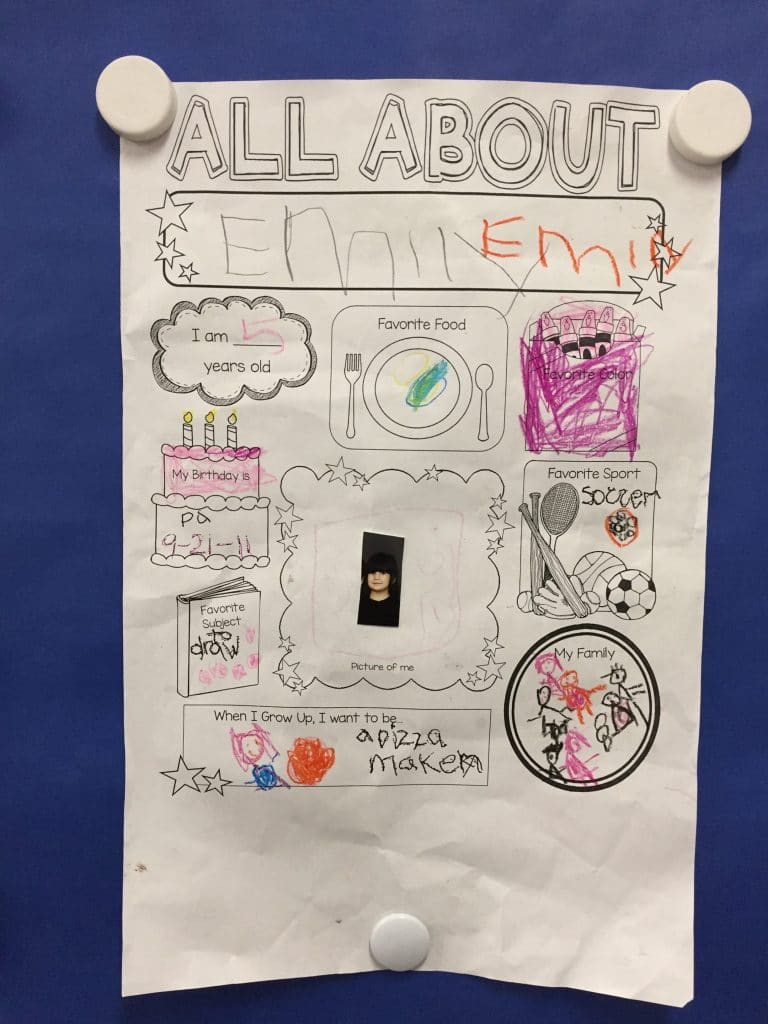 ALL ABOUT
Emily Emily
I am 5
years old
Favorite Food
Favorite Color
My Birthday is
pa
9-21-11
Favorite Sport
soccer
Favorite
Subject
to
draw
Picture of me
My Family
When I Grow Up, I want to be...
a pizza
maker